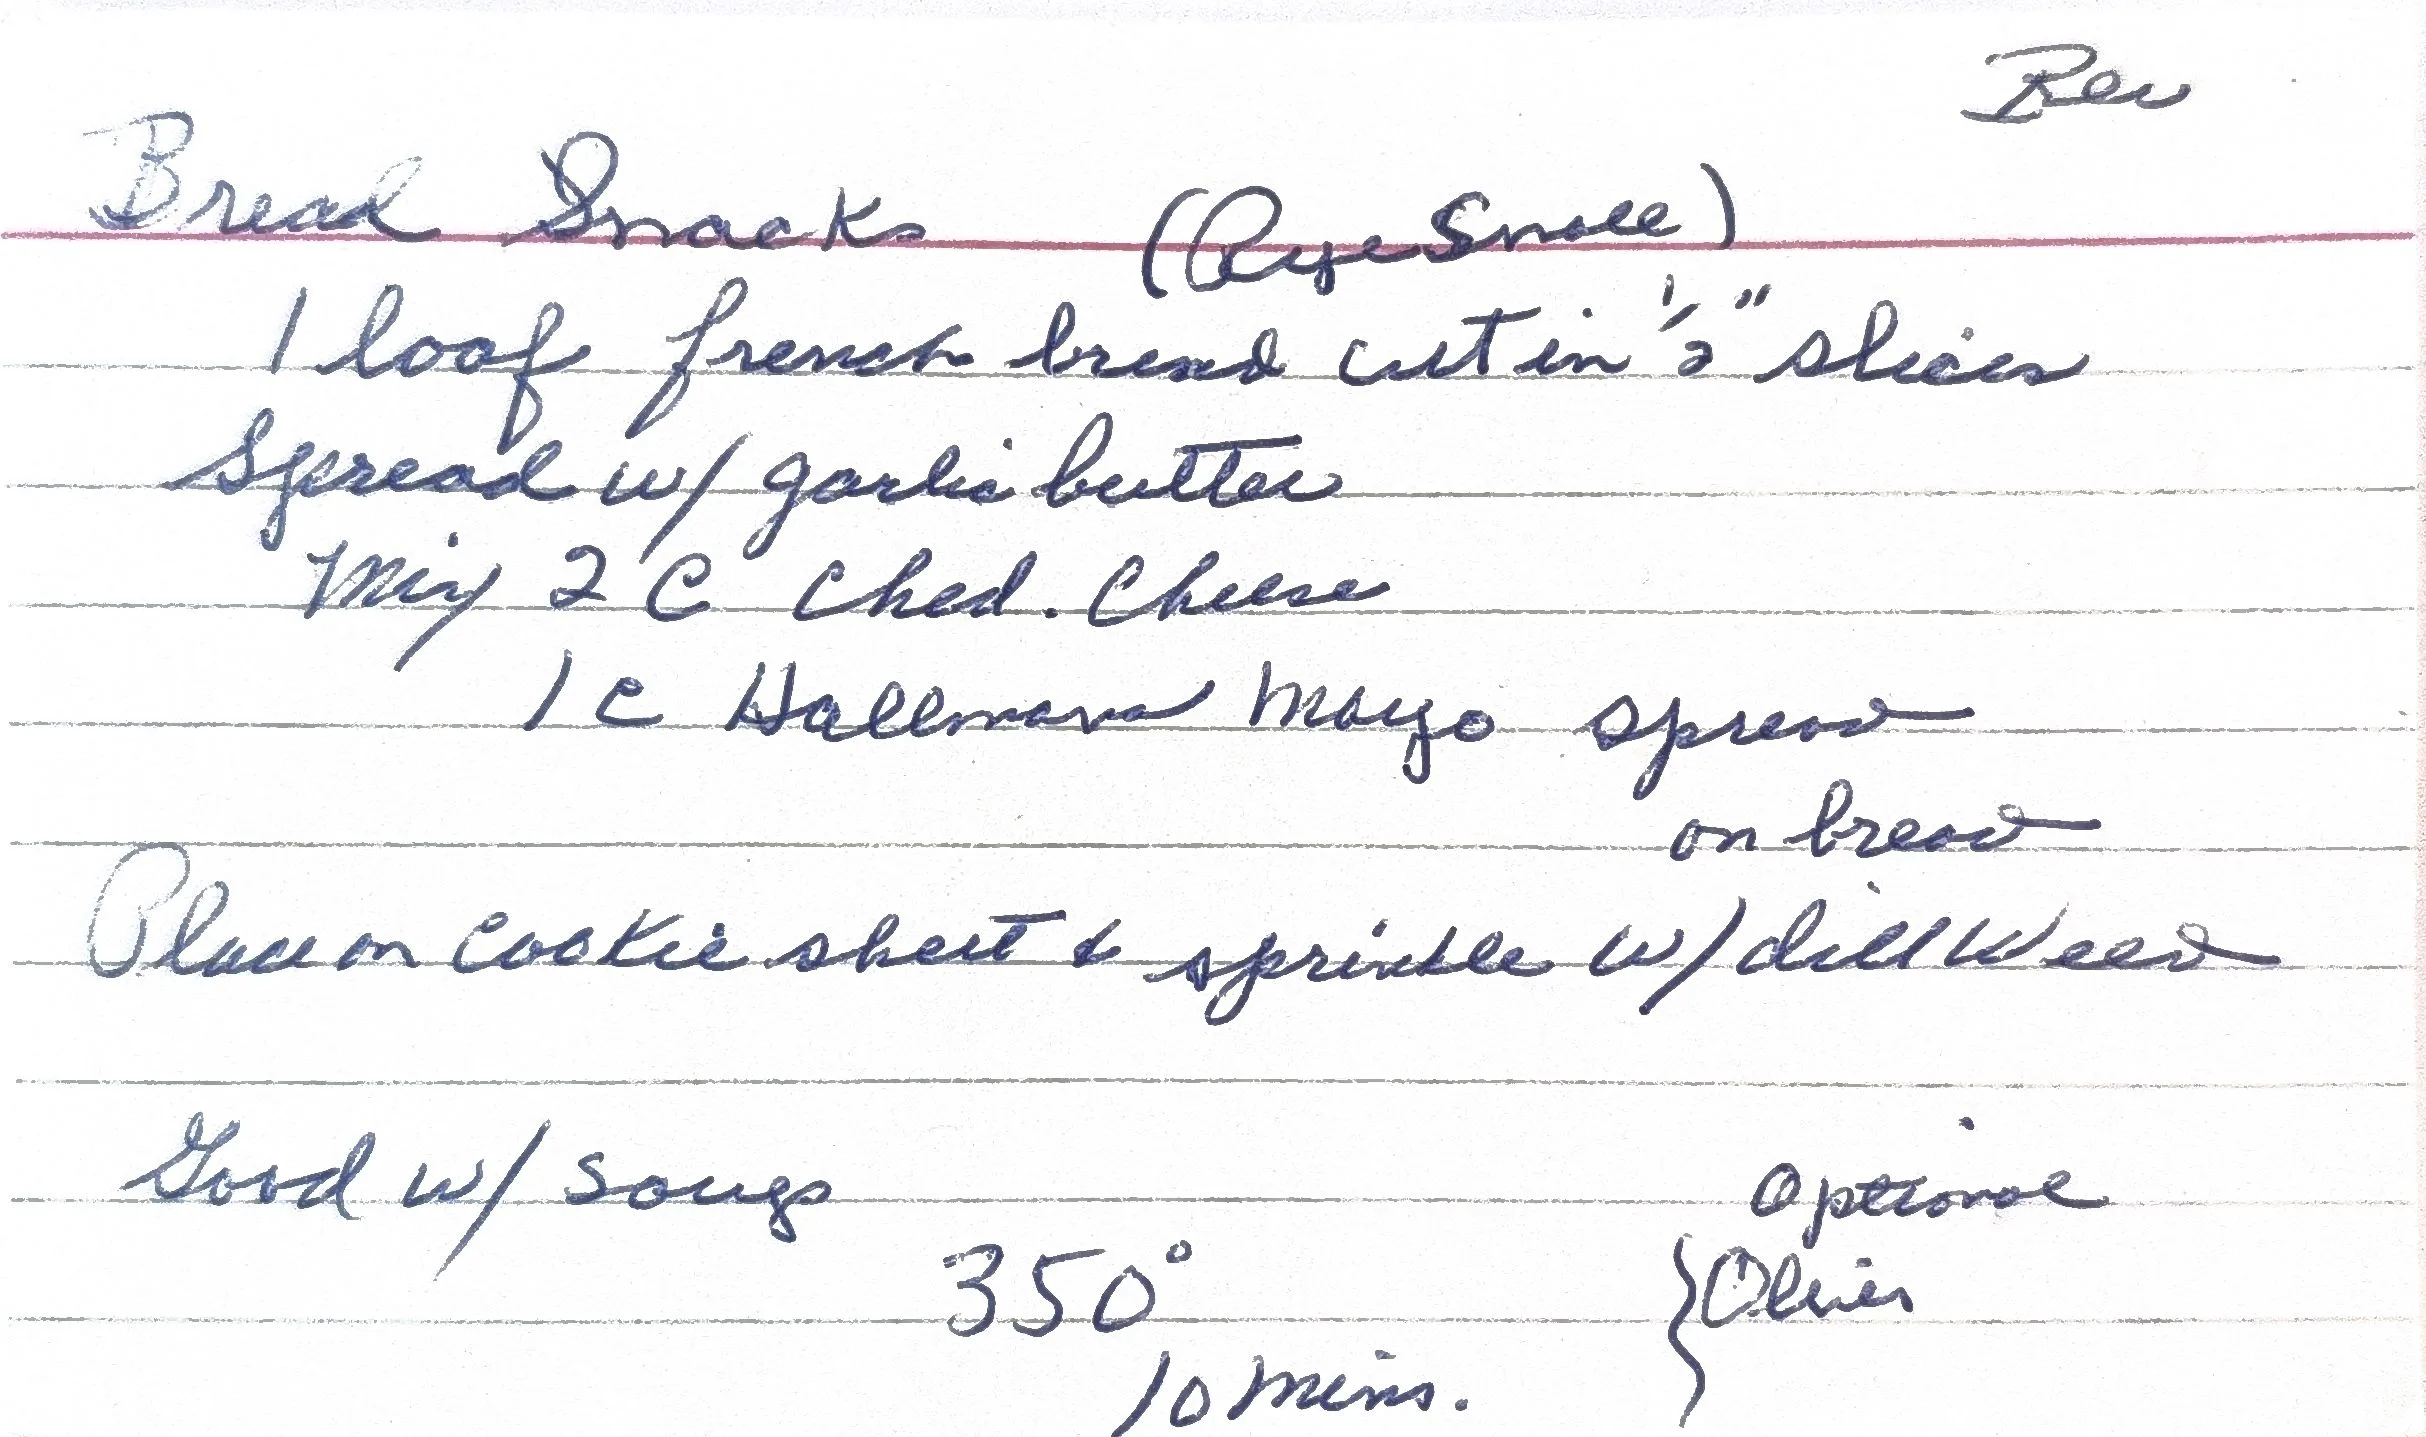 Bev
Bread Snacks (Rye Small)
1 loaf french bread cut in 1/2" slices
Spread w/ garlic butter
Mix 2 C Ched. Cheese
1 c Hallmann Mayo spread
on bread
Place on cookie sheet & sprinkle w/ dill weed
Good w/ soups
Optional
350°
{Olives
10 mins.